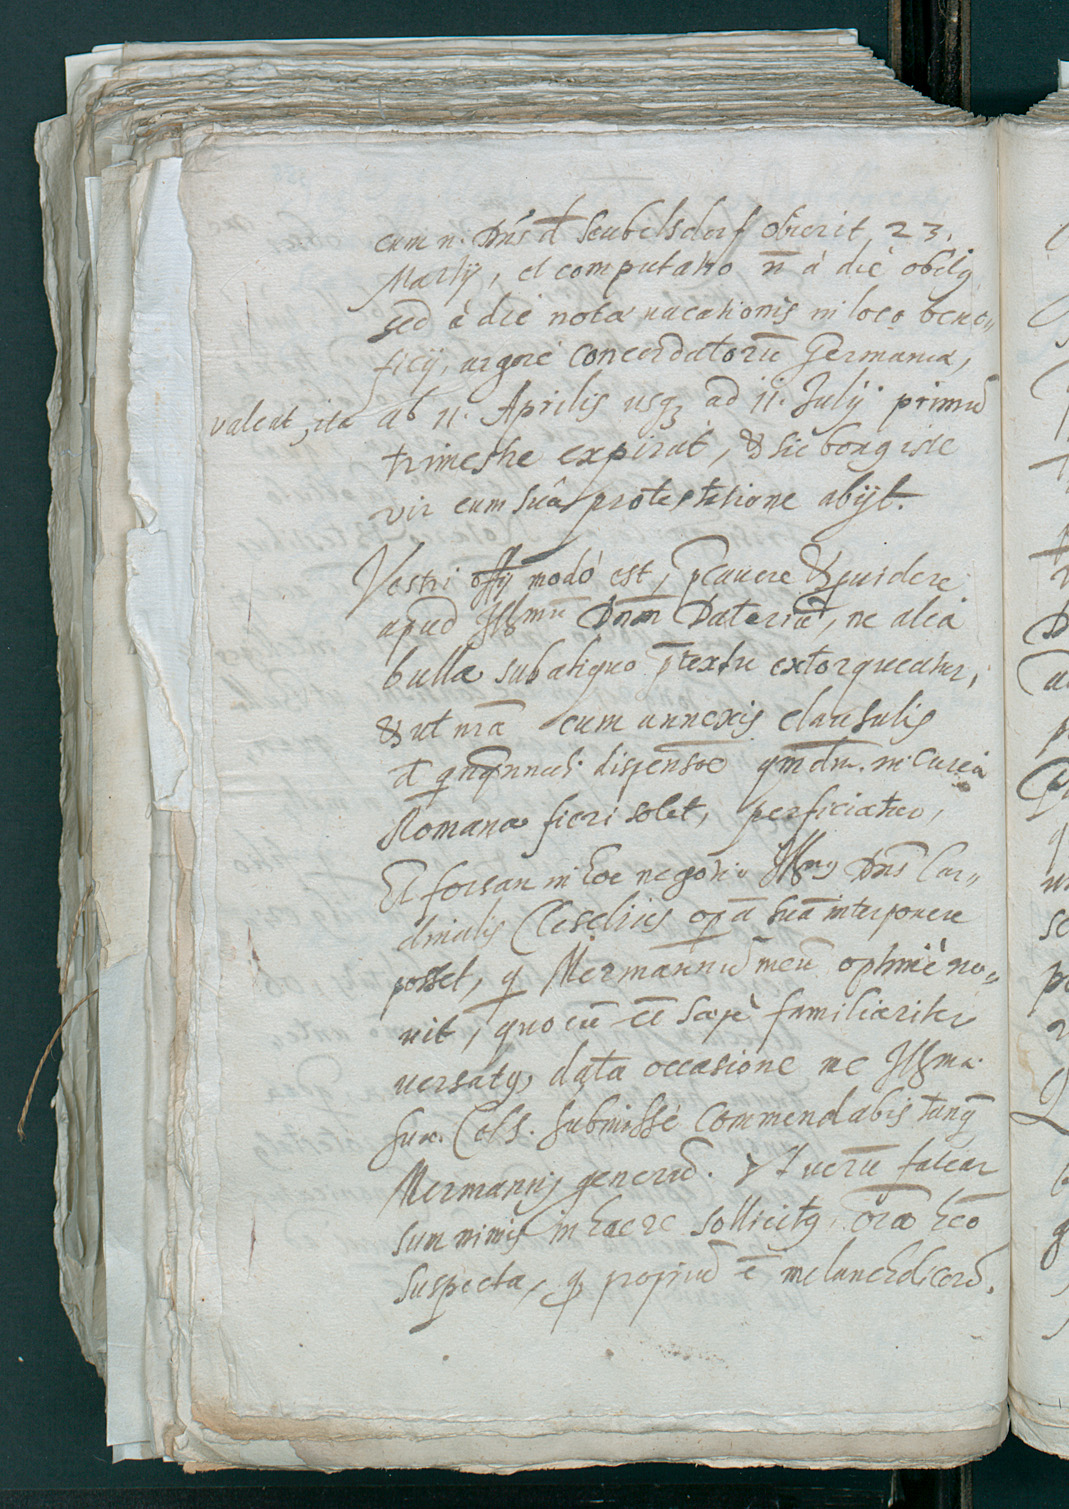 cum n. Dn̄s đ Seubelsdorf obierit 23.
Martij, et computatio n̄ à die obitq
sed à die notæ vacationis in loco bene„
ficij, vigore concordatorū Germaniæ,
valeat, ita ab 11. Aprilis usqȝ ad 11. Julij primū
trimestre expirat, & sic bonq iste
vir cum suâ protestatione abijt.
Vestri offij modò est, p̄cavere & p̱videre
apud Illmū Dn̄m Datariū, ne alia
bulla sub aliquo p̄textu extorqueatur,
& ut nr̄a cum annexis clausulis
đ quinquennali dispensōe qmdm. in Curia
Romana fieri solet, perficiatur,
Et forsan in hoc negotio Illmq Dn̄s Car„
dinalis Cleselius op̄ā suā interponere
posset, q Mermanniū meū optimè no„
vit, quocū ēē sæpè familiariter
versatq, data occasione me Illmæ.
suæ. Cels. submissè commendabis tanq̄
Mermannij generū. Et verū fatear
sum nimis in hac re sollicitq, oīa hēo
suspecta, qđ propriū ē melancholicorū.